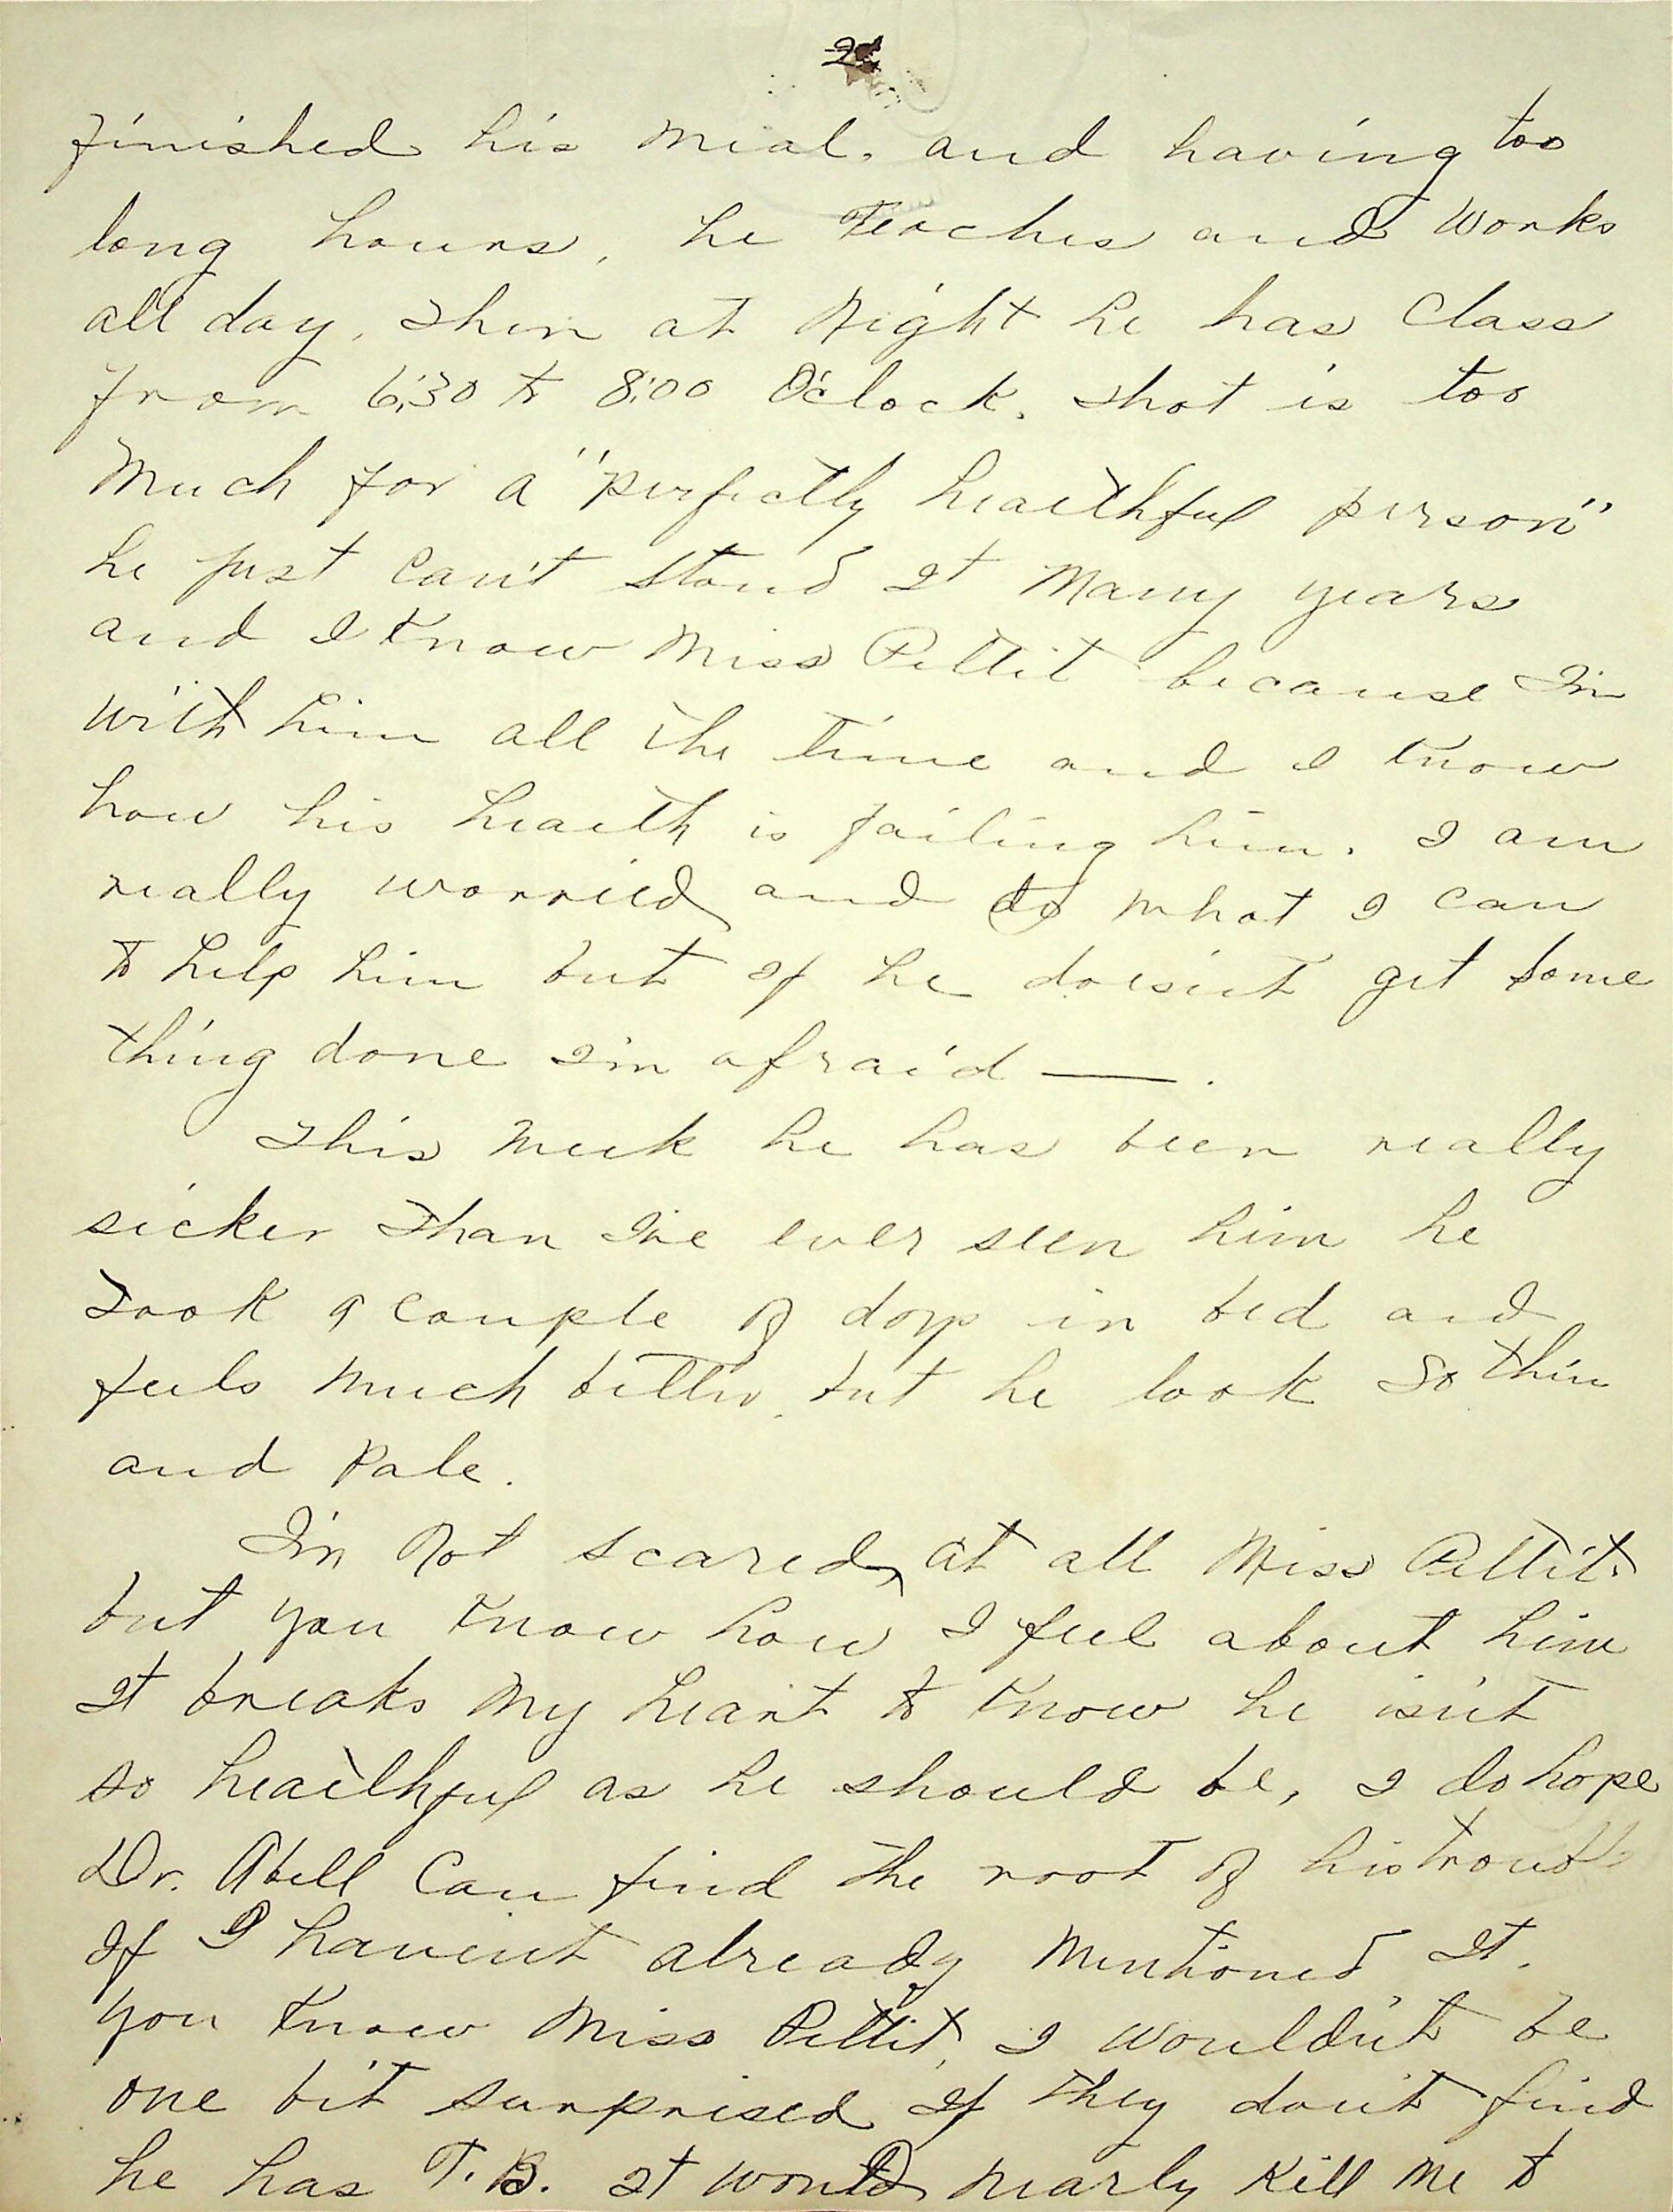 2
finished his meal. and having too
long hours, he Teaches and Works
all day, then at Night he has Class
from 6:30 to 8:00 O'clock. that is too
Much for a "perfectly heaelthful person"
he just can't stand it Many years
and I know Miss Pettit because I'm
with him all the time and I know
how his heaelth is failing him. I am
really worried and do what I can
to help him but if he does'nt get some
thing done I'm afraid —.
This week he has been really
sicker than I've ever seen him he
took a couple of days in bed and
feels much better, but he look so thin
and pale.
I'm Not scared, at all Miss Pettit.
but you know how I feel about him
It breaks My heart to know he is'nt
so heaelthful as he should be, I do hope
Dr. Abell Can find the root of his trouble
If I have'nt already Mentioned it.
you know Miss Pettit, I would'nt be
one bit surprised if they don't find
he has T.B. It would Nearly Kill Me to